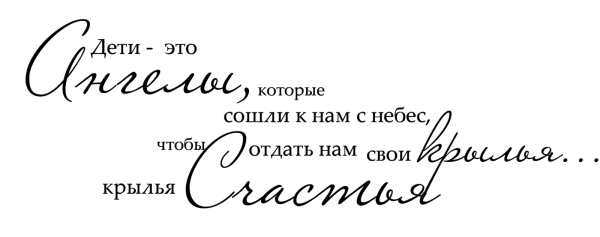 Дети - это
Ангелы, которые
сошли к нам с небес,
чтобы отдать нам свои крылья...
крылья Счастья